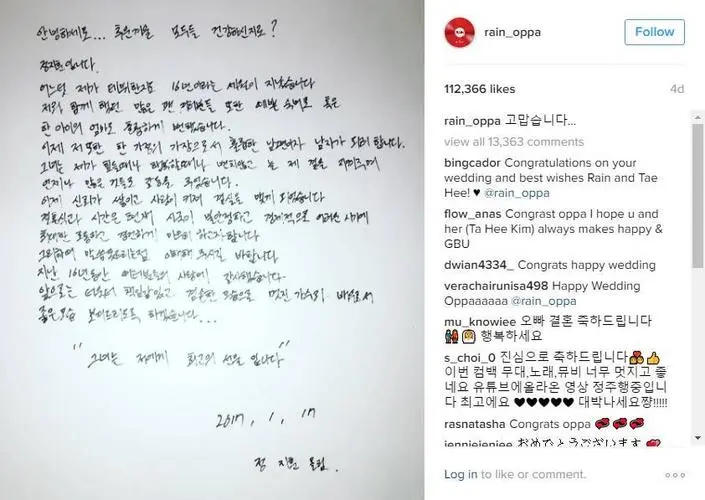 안녕하세요... 추운겨울 모두들 건강하신지요?
정지훈입니다.
어느덧 제가 데뷔한지도 16년이라는 세월이 지났습니다
저와 함께 했던 많은 팬 여러분들 또한 예쁜 숙녀로 혹은
한 아이의 엄마로 훌륭하게 변했습니다.
이제 저 또한 한 가정의 가장으로서 훌륭한 남편이자 남자가 되려 합니다.
그녀는 제가 힘들때나 행복할때나 변치않고 늘 제 곁을 지켜주며
언제나 많은 것들로 감동을 주었습니다.
이제 신뢰가 쌓이고 사랑이 커져 결실을 맺게 되었습니다
결혼식과 시간은 현재 시국이 불안정하고 경제적으로 어려운 시기에
최대한 조용하고 경건하게 하고자합니다
그리하여 이해해 주시길 바랍니다.
지난 16년동안 여러분들의 사랑에 감사했습니다.
앞으로는 더욱더 책임감있고 겸손한 모습으로 멋진 가수와 배우로서
좋은모습 보여드리도록 하겠습니다...
"그녀는 저에게 최고의 선물 입니다"
2017. 1. 17
정 지훈 올림.
rain_oppa
Follow
112,366 likes 4d
rain_oppa 고맙습니다...
view all 13,363 comments
bingcador Congratulations on your
wedding and best wishes Rain and Tae
Hee! ♥ @rain_oppa
flow_anas Congrast oppa I hope u and
her (Ta Hee Kim) always makes happy &
GBU
dwian4334_ Congrats happy wedding
verachairunisa498 Happy Wedding
Oppaaaaaa @rain_oppa
mu_knowiee 오빠 결혼 축하드립니다
👫👰 행복하세요
s_choi_0 진심으로 축하드립니다💑👍
이번 컴백 무대,노래,뮤비 너무 멋지고 좋
네요 유튜브에올라온 영상 정주행중입니
다 최고에요 ♥♥♥♥♥ 대박나세요쨩!!!!!
rasnatasha Congrats oppa 💞💞💞
jenniejenjee おめでとうございます 💓
Log in to like or comment.